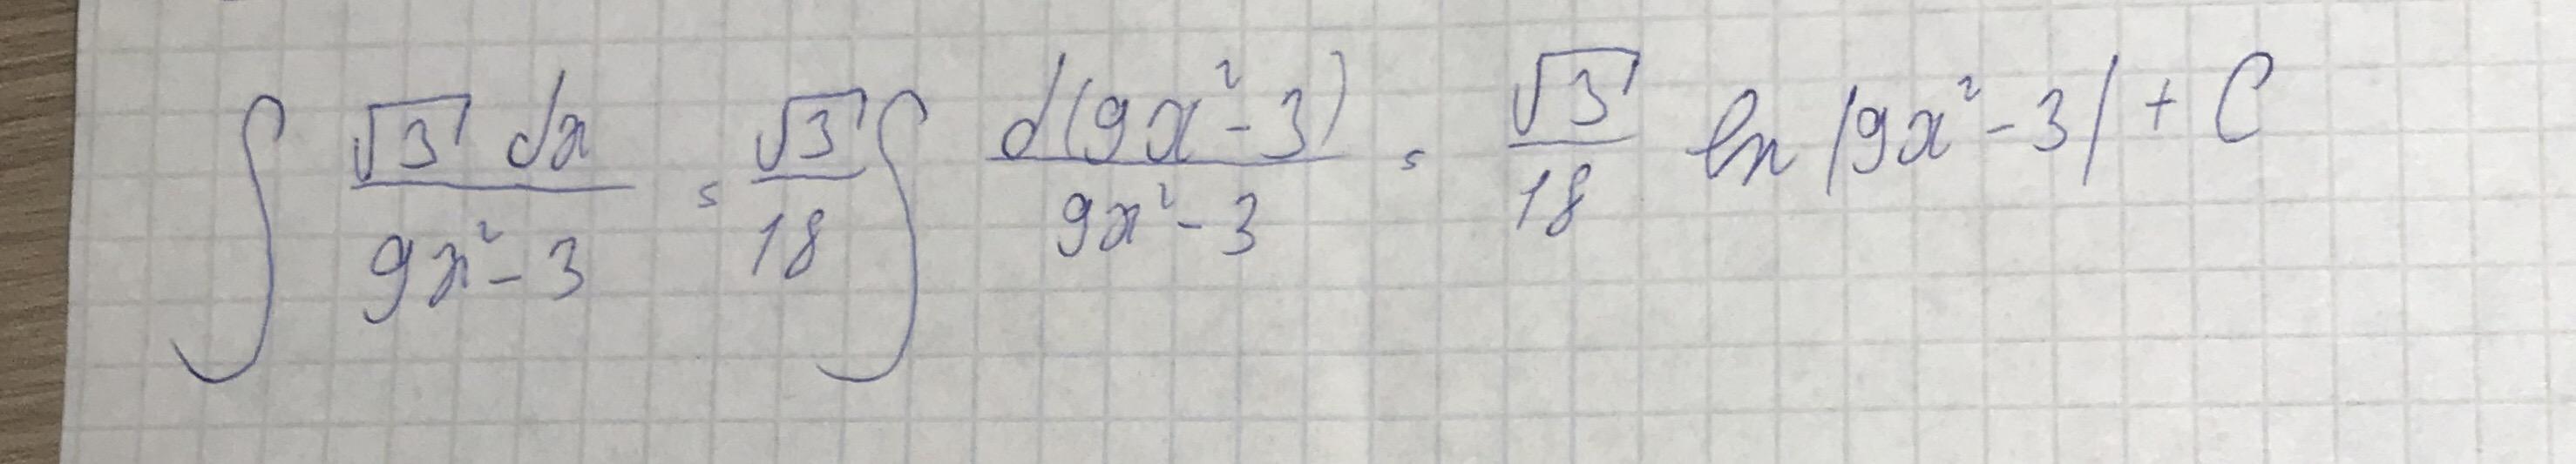 ∫ √3 dx / (9x² - 3) = √3/18 ∫ d(9x² - 3) / (9x² - 3) = √3/18 ln |9x² - 3| + C